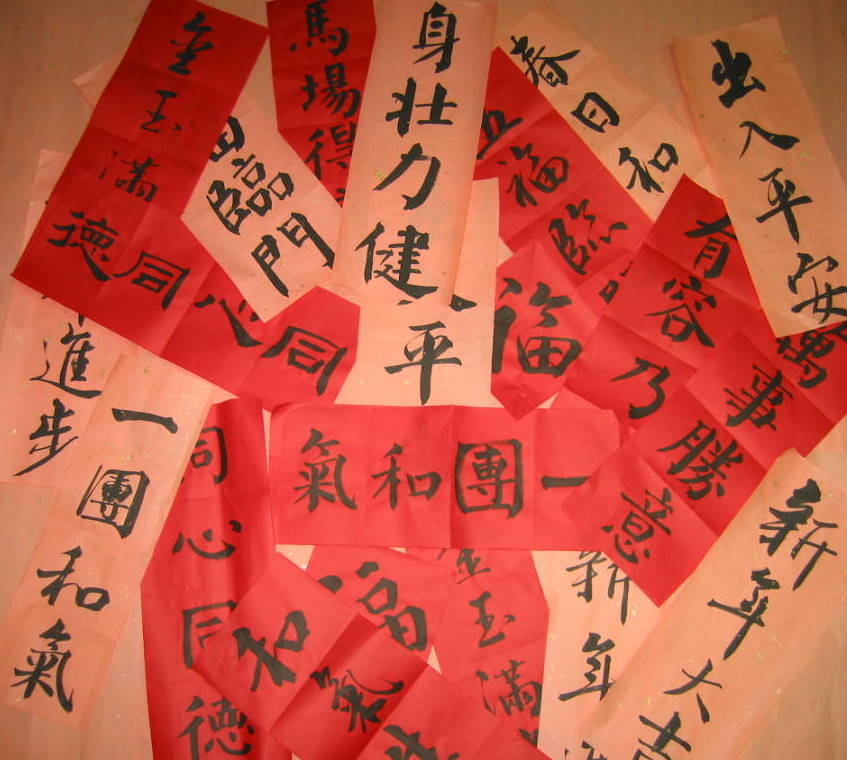 金玉滿
馬場得
身壯力健
春日和
出入平安
臨門
五福臨
德同心同
進步
平
福
有容乃
萬事勝意
一團和氣
一團和氣
同心同德
福
和氣
金玉滿
新年
新年大吉